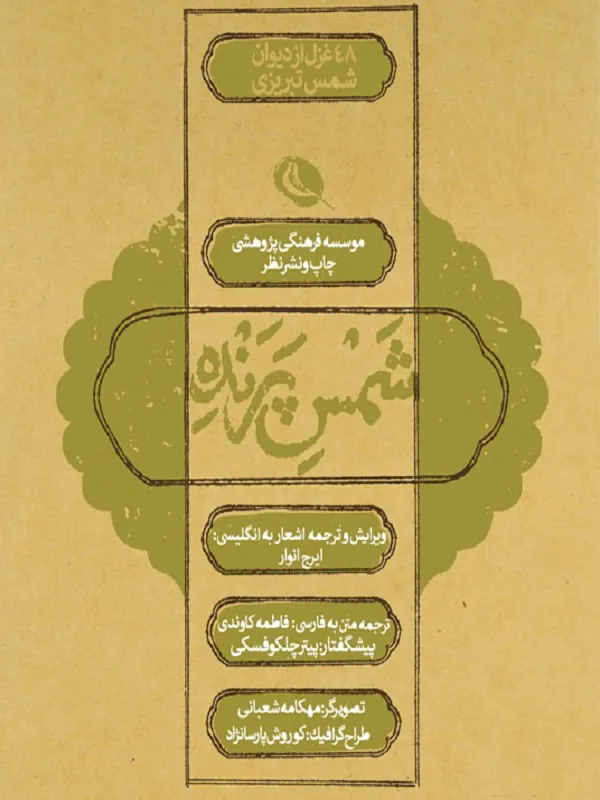 ۴۸ غزل از دیوان
شمس تبریزی
موسسه فرهنگی پژوهشی
چاپ و نشر نظر
شَمْسِ پَرَنْدِه
ویرایش و ترجمه اشعار به انگلیسی:
ایرج انوار
ترجمه متن به فارسی: فاطمه کاوندی
پیشگفتار: پیتر چلکوفسکی
تصویرگر: مهکامه شعبانی
طراح گرافیک: کوروش پارسانژاد